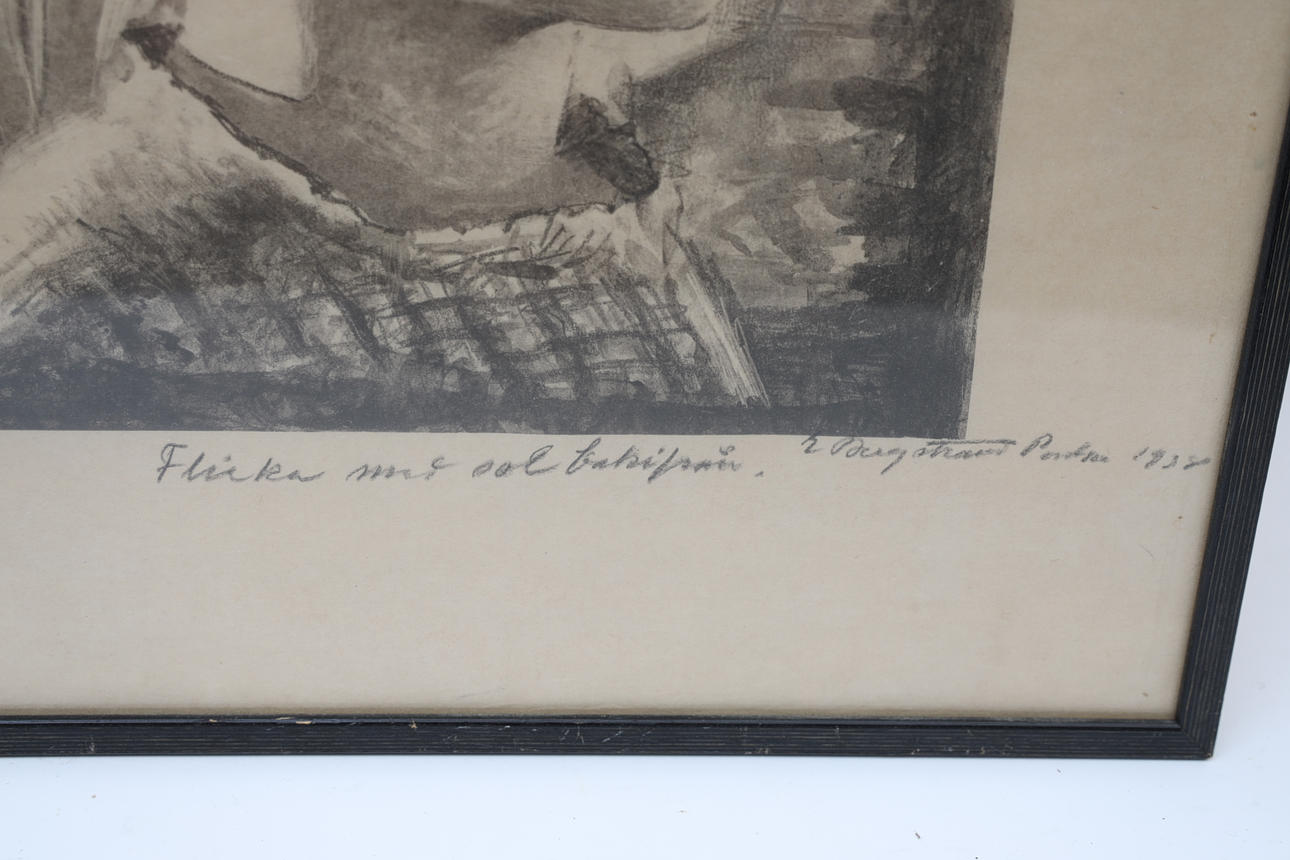 Flicka med sol bakifrån. E Bergstrand Poulsen 1938